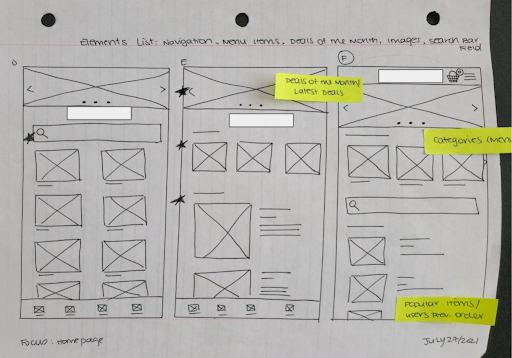 Elements List: Navigation, Menu items, Deals of the Month, Images, Search Bar
Field
D
E
F
Deals of the Month/
Latest Deals
Categories (Menu
Popular items/
users prev. order
Focus: Homepage
July 27/2021